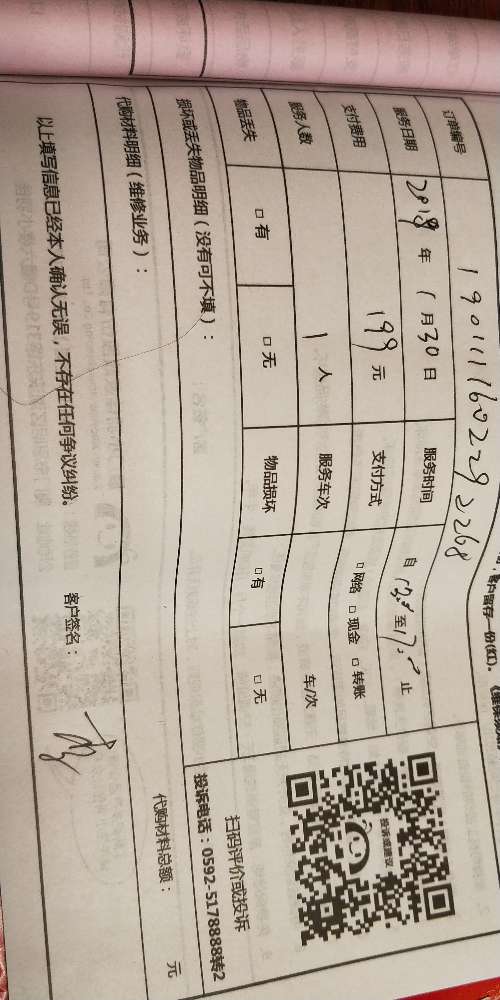 客户留存一份(红)。
订单编号 1901111602292268
服务日期 2019 年 1 月 30 日 服务时间 自 13.0 至 17.0 止
支付费用 199 元 支付方式 □ 网络 □ 现金 □ 转账
服务人数 1 人 服务车次 车/次
物品丢失 □ 有 □ 无 物品损坏 □ 有 □ 无
损坏或丢失物品明细(没有可不填):
投诉或建议
扫码评价或投诉
投诉电话:0592-5178888转2
代购材料明细(维修业务):
代购材料总额: 元
以上填写信息已经本人确认无误,不存在任何争议纠纷。
客户签名: